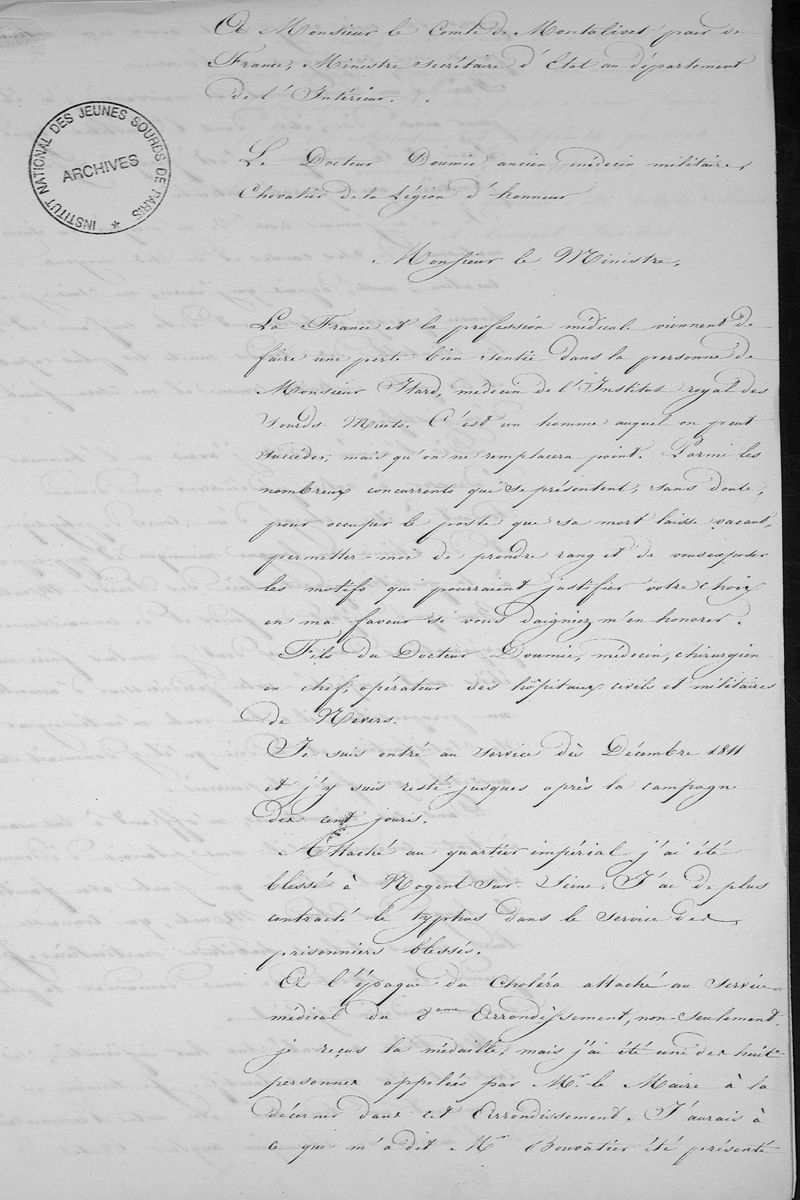 A Monsieur le Comte de Montalivet pair de
France, Ministre Secrétaire d'Etat au département
de l'Intérieur.
INSTITUT NATIONAL DES JEUNES SOURDS DE PARIS *
ARCHIVES
Le Docteur Doumic ancien médecin militaire,
Chevalier de la Légion d'honneur
Monsieur le Ministre,
La France et la profession médicale viennent de
faire une perte bien sentie dans la personne de
Monsieur Itard, médecin de l'Institut royal des
Sourds-Muets. C'est un homme auquel on peut
succéder, mais qu'on ne remplacera point. Parmi les
nombreux concurrents qui se présentent, sans doute,
pour occuper le poste que sa mort laisse vacant,
permettez-moi de prendre rang et de vous exposer
les motifs qui pourraient justifier votre choix
en ma faveur si vous daigniez m'en honorer.
Fils du Docteur Doumic, médecin, chirurgien
en chef, opérateur des hôpitaux civils et militaires
de Nevers.
Je suis entré au service dès Décembre 1811
et j'y suis resté jusques après la campagne
des cent jours.
Attaché au quartier impérial j'ai été
blessé à Nogent-sur-Seine. J'ai de plus
contracté le typhus dans le service des
prisonniers blessés.
A l'époque du Choléra attaché au Service
médical du 8eme Arrondissement, non-seulement,
je reçus la médaille, mais j'ai été une des huit
personnes appelées par Mr. le Maire à la
décerner dans cet Arrondissement. J'aurais à
ce que m'a dit Mr Bouvatier été présenté